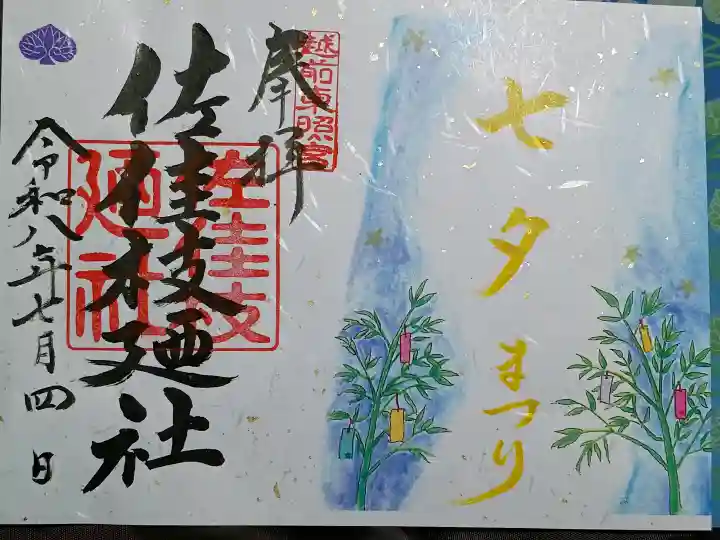 七夕まつり
奉拝
越前東照宮
佐佳枝廼社
佐佳枝
廼社
令和八年七月四日